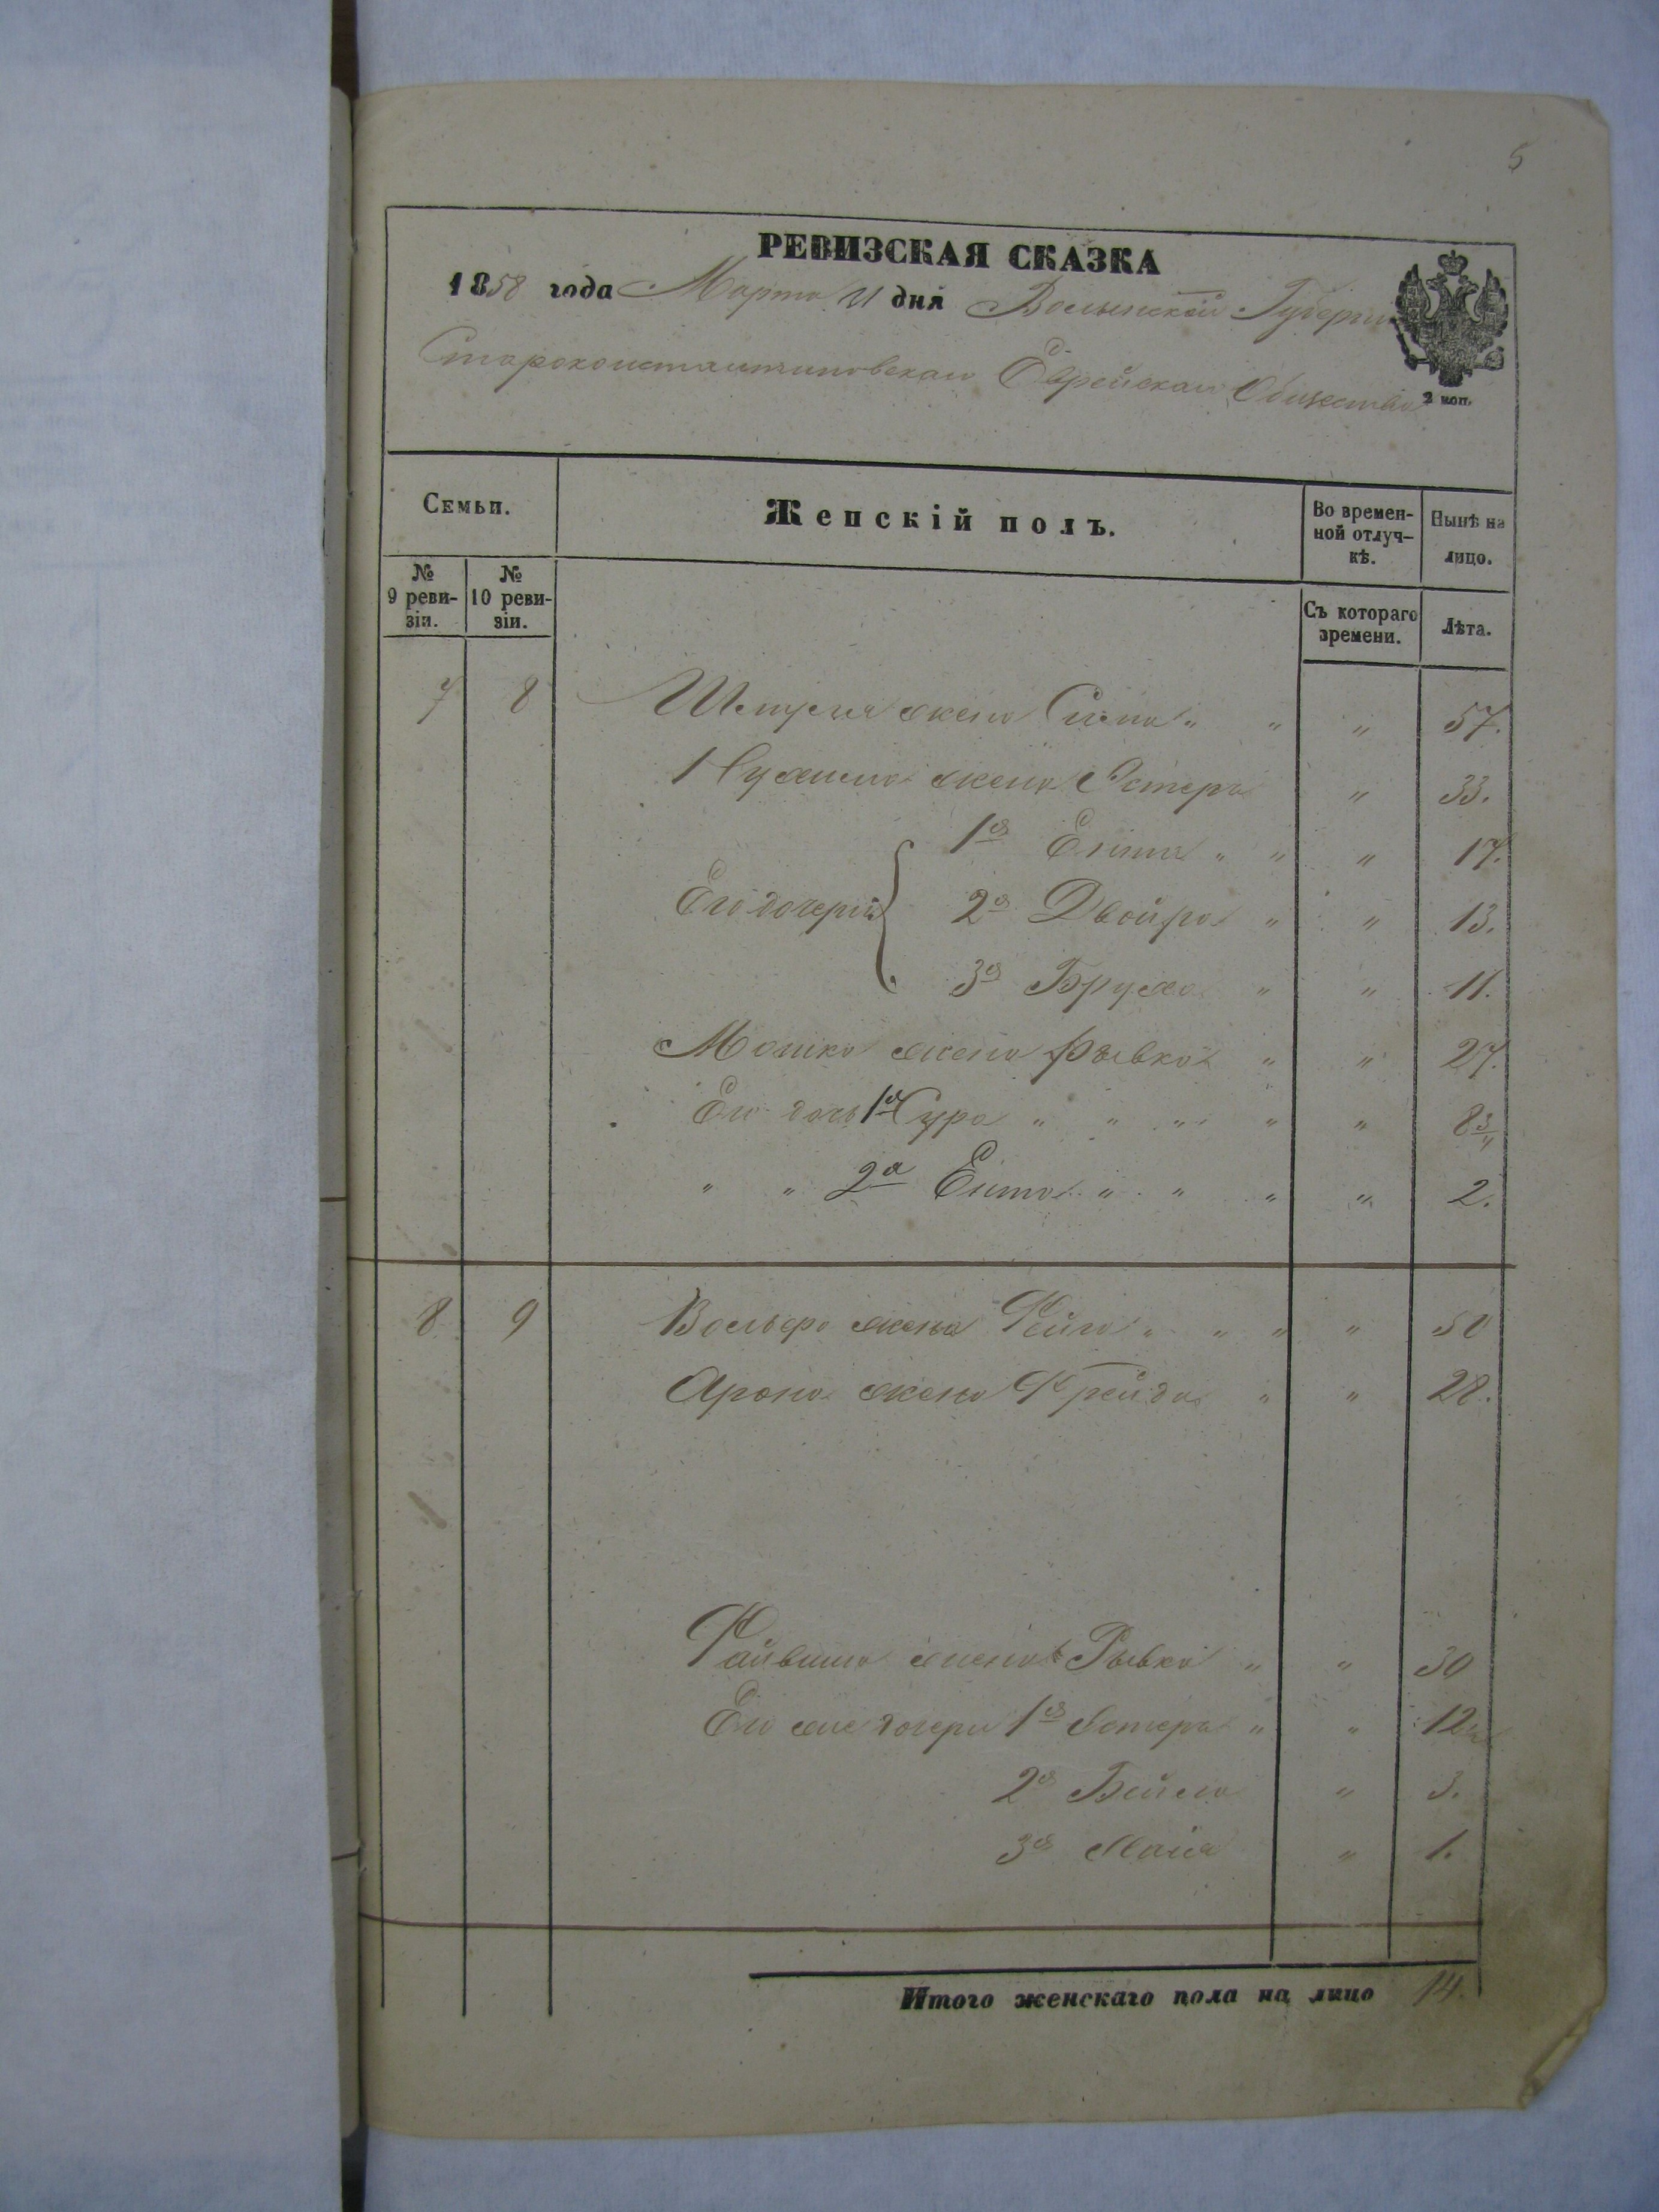 5
РЕВИЗСКАЯ СКАЗКА
1858 года Марта 21 дня Волынской Губерніи
Староконстантиновскаго Еврейскаго Общества
2 коп.
Семьи. Женскій полъ. Во времен- Нынѣ на
ной отлуч- лицо.
кѣ.
№ №
9 реви- 10 реви- Съ котораго Лѣта.
зіи. зіи. времени.
7 8 жена " " " 57.
Нухима жена Эстеръ " 33.
1я Ента " " " 17.
Его дочери 2я Двойра " " 13.
3я Бруха " " 11.
Мошка жена Рывка " " 27.
Его дочь 1я Сура " " " " " 8 3/4
" " 2я Ента " " " " 2.
8 9 Вольфа жена Фейга " " " " 50
Арона жена Фрейда " " 28.
Файвиша жена Рывка " " 30
Его же дочери 1я Эстеръ " " 12
2я Бейла " 3.
3я " 1.
Итого женскаго пола на лицо 14.